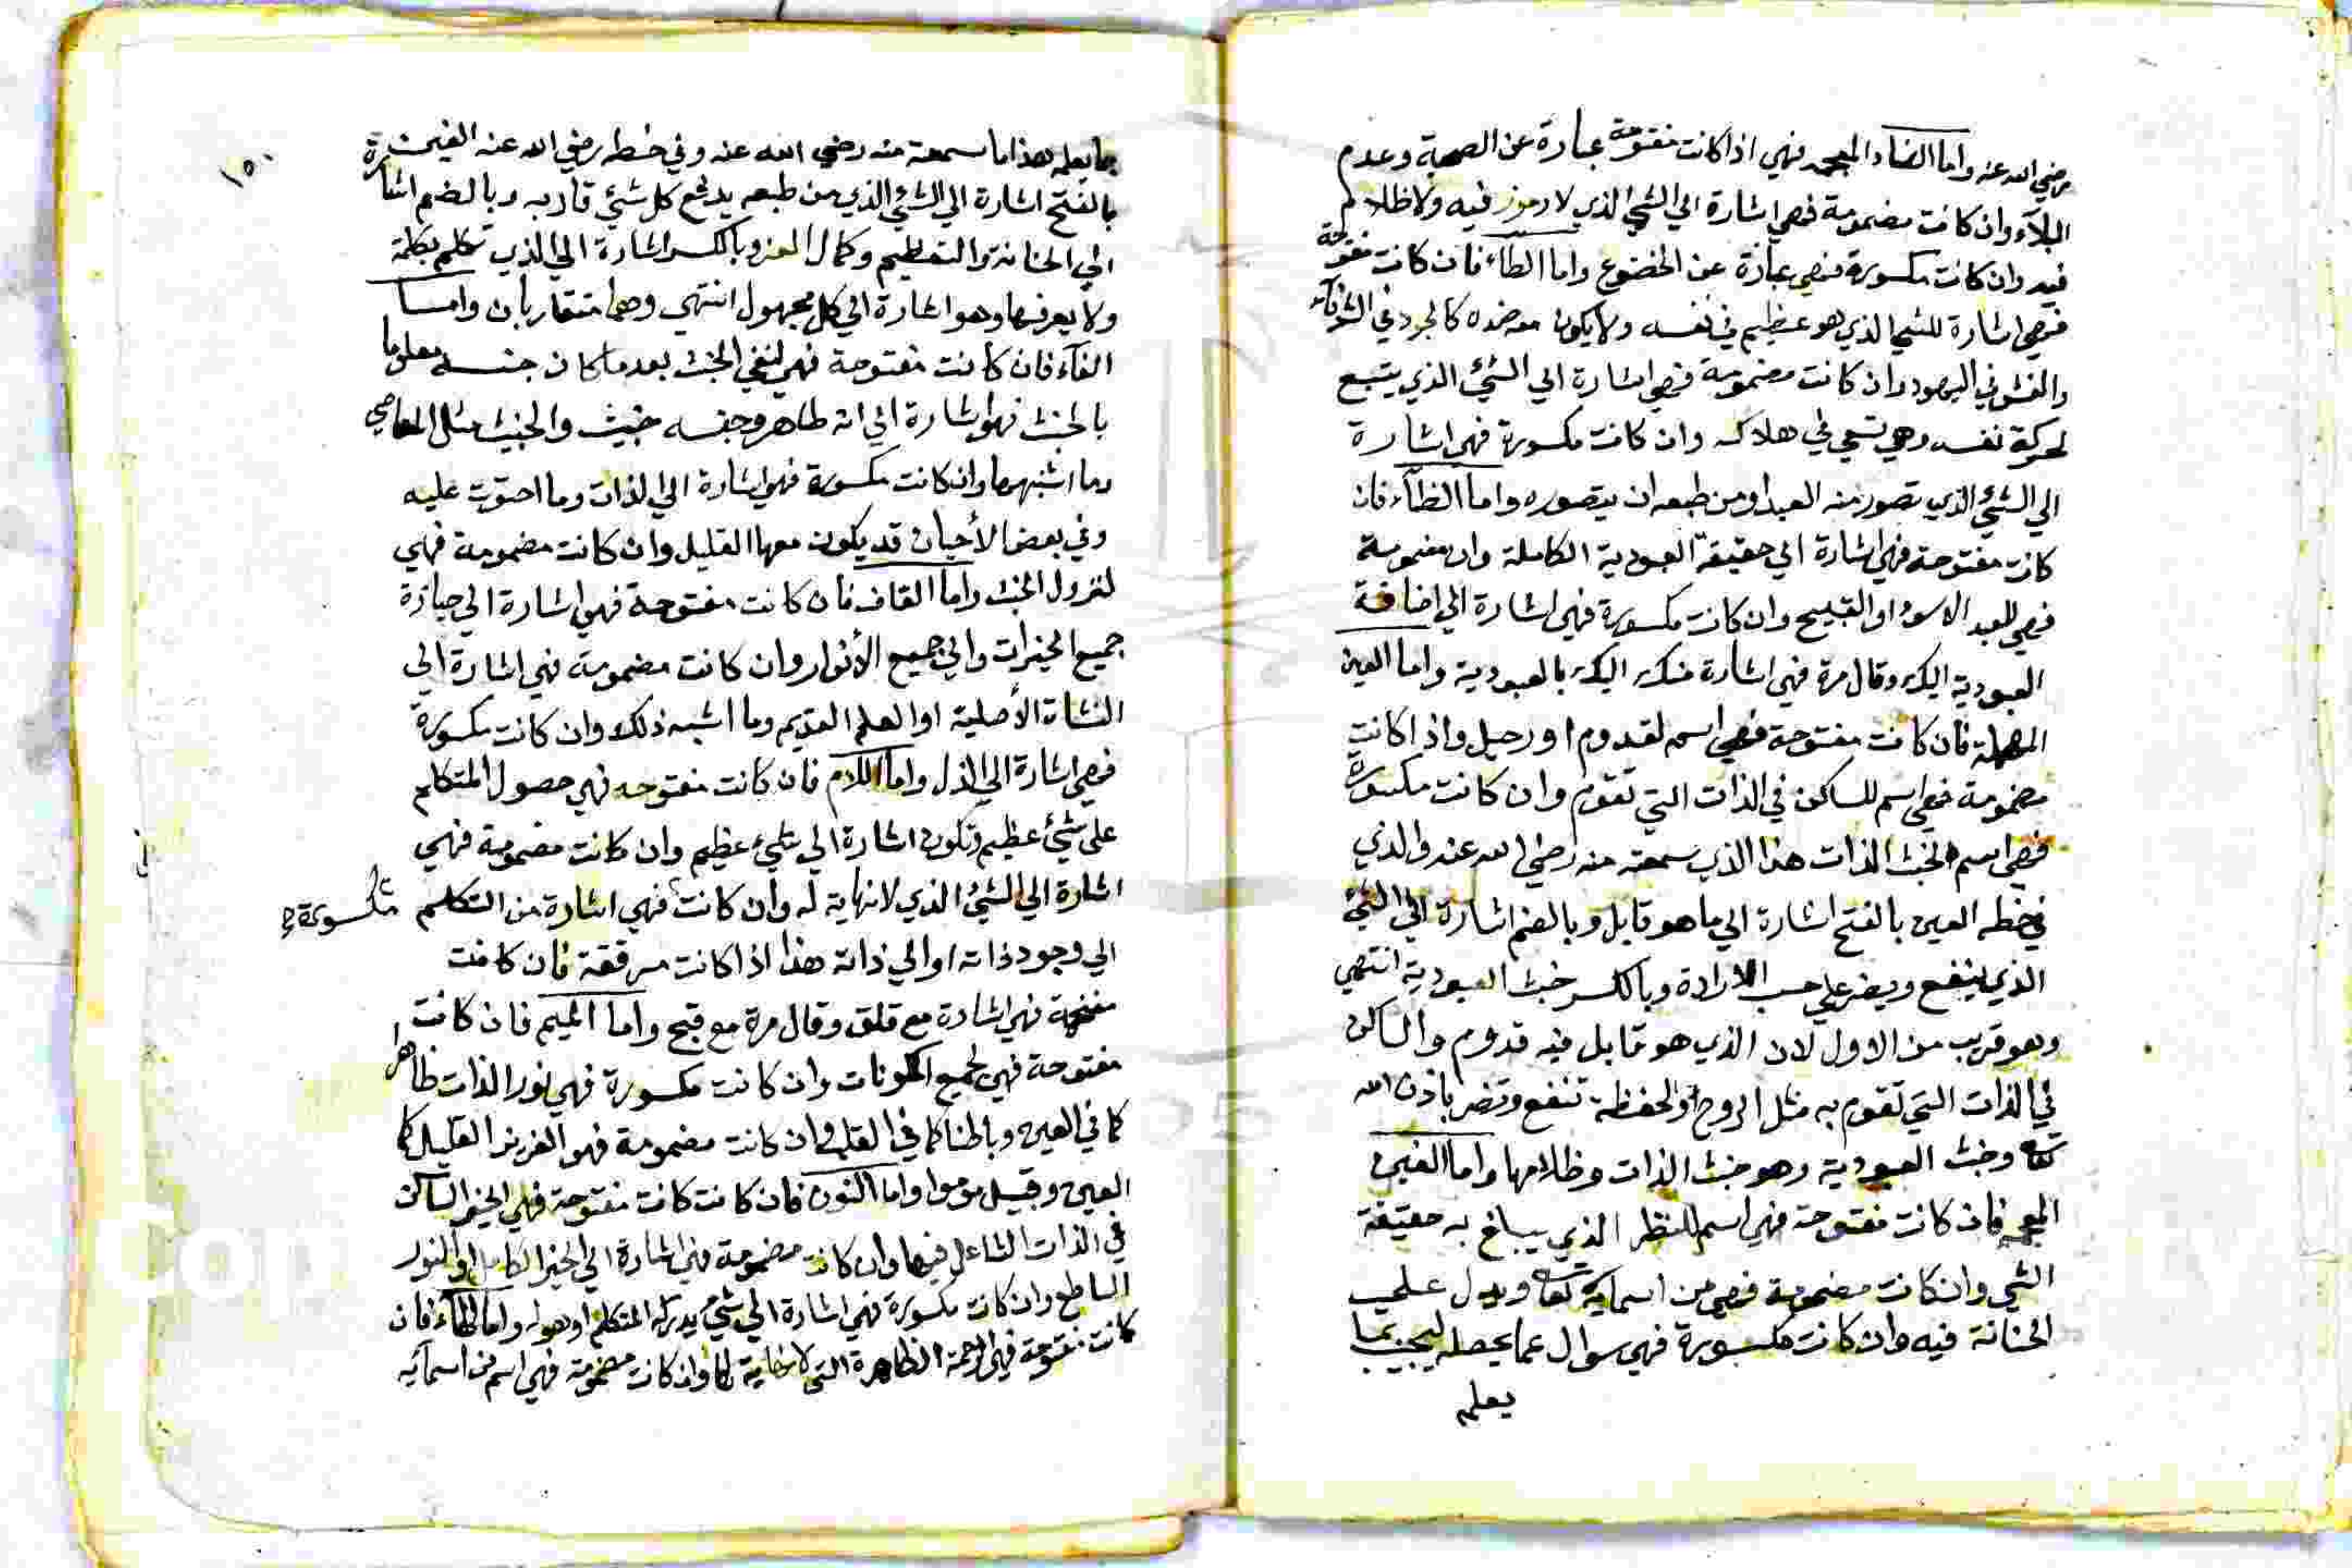 رضي الله عنه واما الضاد المعجمه فهي اذا كانت مفتوحة عبارة عن الصحبة وعدم
البلاء وان كانت مضمومة فهي اشارة الي الشئ الذي لا رموز فيه ولا ظلام
فيه وان كانت مكسورة فهي عبارة عن الخضوع واما الطاء فان كانت مفتوحة
فهي اشارة للشئ الذي هو عظيم في نفسه ولا يكون معه ضده كالجود في الشرفاء
والغش في اليهود وان كانت مضمومة فهي اشارة الي الشئ الذي يتبع
لحركة نفسه وهي تسعي في هلاكه وان كانت مكسورة فهي اشارة
الي الشئ الذي تصور منه العبد او من طبعه ان يتصوره واما الظاء فان
كانت مفتوحة فهي اشارة الي حقيقة العبودية الكاملة وان مضمومة
فهي للعبد الاسود او القبيح وان كانت مكسورة فهي اشارة الي اضافة
العبودية اليك وقال مرة فهي اشارة منك اليك بالعبودية واما العين
المهملة فان كانت مفتوحة فهي اسم لقدوم او رحيل واذا كانت
مضمومة فهي اسم للساكن في الذات التي تقوم وان كانت مكسورة
فهي اسم لخبث الذات هذا الذي سمعته منه رضي الله عنه والذي
في خطه العين بالفتح اشارة الي ما هو قابل وبالضم اشارة الي الشئ
الذي ينفع ويضر علي حسب الارادة وبالكسر خبث العبودية انتهي
وهو قريب من الاول لان الذي هو قابل فيه قدوم والساكن
في الذات التي تقوم به مثل الروح والحفظة تنفع وتضر باذن الله
تعا وخبث العبودية وهو خبث الذات وظلامها واما الغين
المعجمه فان كانت مفتوحة فهي اسم للنظر الذي يبلغ به حقيقة
الشئ وان كانت مضمومة فهي من اسمايه تعا ويدل علي
الحنانة فيه وان كانت مكسورة فهي سوال عما يحصله ليجيب بما
يعلم
١٥٠
بما يعلم هذا ما سمعته منه رضي الله عنه وفي خطه رضي الله عنه الغين
بالفتح اشارة الي الشئ الذي من طبعه يدفع كل شئ قاربه وبالضم اشارة
الي الحنانة والتعظيم وكمال العز وبالكسر اشارة الي الذي تكلم بكلمة
ولا يعرفها وهو اشارة الي كل مجهول انتهي وهما متقاربان واما
الفاء فان كانت مفتوحة فهي لنفي الخبث بعد ما كان جنسه معلوما
بالخبث فهو اشارة الي انه طاهر وجنسه خبيث والخبيث مثل المعاصي
وما اشبهها وان كانت مكسورة فهي اشارة الي الذات وما احتوت عليه
وفي بعض الأحيان قد يكون معها القليل وان كانت مضمومة فهي
لنزول الخبث واما القاف فان كانت مفتوحة فهي اشارة الي حيازة
جميع الخيرات والي جميع الأنوار وان كانت مضمومة فهي اشارة الي
النشاة الأصلية او العلم القديم وما اشبه ذلك وان كانت مكسورة
فهي اشارة الي الذل واما اللام فان كانت مفتوحه فهي حصول المتكلم
علي شئ عظيم وتكون اشارة الي شئ عظيم وان كانت مضمومة فهي
اشارة الي الشئ الذي لا نهاية له وان كانت فهي اشارة من المتكلم
مكسورة
الي وجود ذاته او الي ذاته هذا اذا كانت مرققة فان كانت
مفخمة فهي اشارة مع قلق وقال مرة مع قبح واما الميم فان كانت
مفتوحة فهي لجميع المكونات وان كانت مكسورة فهي نور الذات ظاهرا
كما في العين وباطنا كما في القلب وان كانت مضمومة فهو العزيز القليل كما
العين وقيل موموا واما النون فان كانت كانت مفتوحة فهي الخير الساكن
في الذات الشاعل فيها وان كانت مضمومة فهي اشارة الي الخير الكامل او النور
الساطع وان كانت مكسورة فهي اشارة الي شئ يدركه المتكلم او هو له واما الهاء فان
كانت مفتوحة فهي الرحمة الطاهرة التي لا نهاية لها وان كانت مضمومة فهي اسم من اسمائه